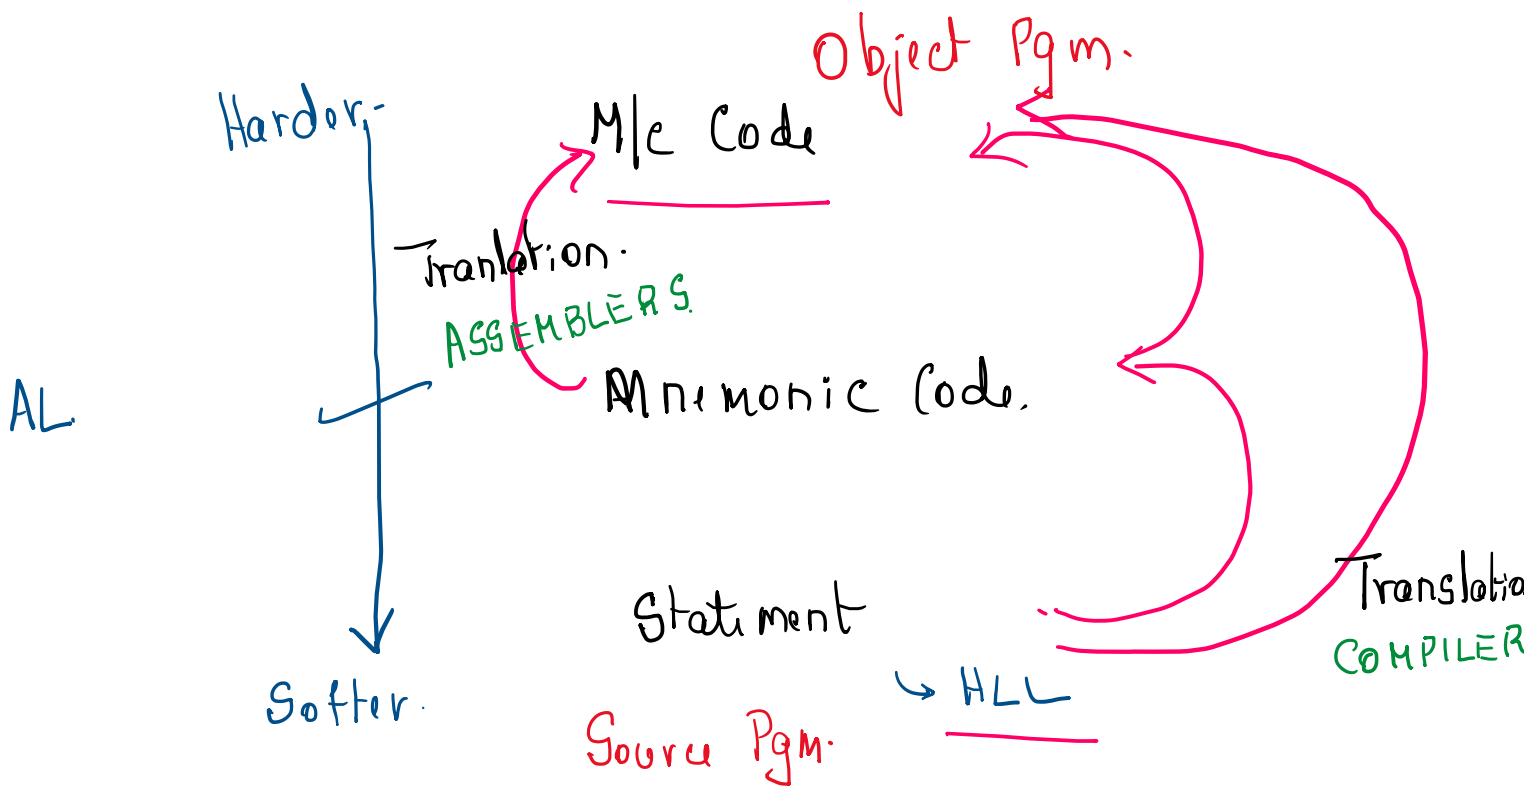 Object Pgm.
Harder
M/c Code
Tranlation.
ASSEMBLERS
AL
Mnemonic Code.
Statement
Translatio
COMPILER
HLL
Softer.
Source Pgm.